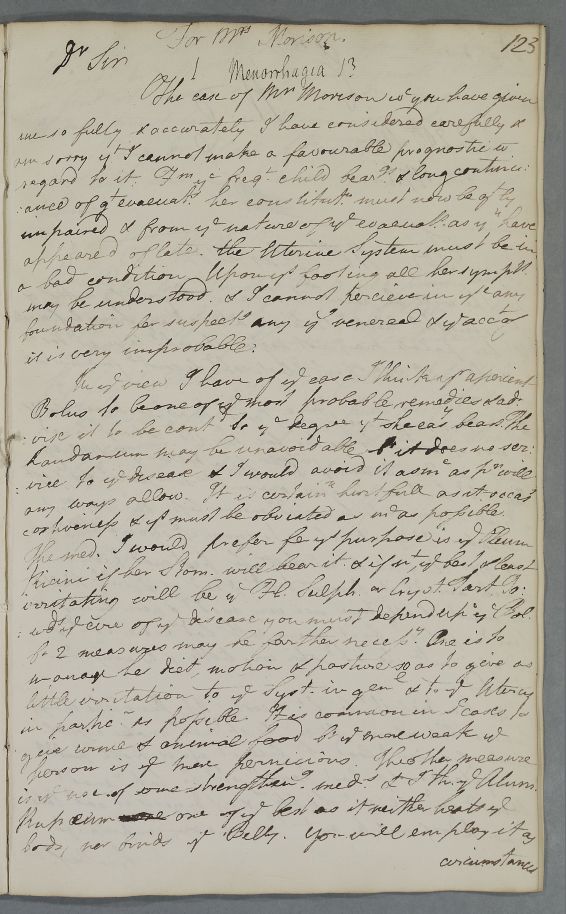 123
For Mrs Morison.
Dr Sir
Menorrhagia 1?
The case of Mrs Morison wc you have given
me so fully & accurately I have considered carefully &
am sorry yt I cannot make a favourable prognostic w
regard to it. Fm ye freqt child beart & long continu:
:ance of gt evacuats her constitutn must now be gtly
impaired & from ye nature of ye evacuatn as yy have
appeared of late. the Uterine System must be in
a bad condition Upon ys footing all her sympts.
may be understood. & I cannot percieve in ym any
foundation for suspectg any yg venereal & yt acctg
it is very improbable:
In ys view I have of ye case I think yr aperient
Bolus to be one of ye most probable remedies & ad:
:vise it to be contd to ye degree yt she can bear. The
Laudanum may be unavoidable but it does no ser:
vice to ye disease & I would avoid it as mc as pn will
any ways allow. It is certainly hurtfull as it occas
costiveness & ys must be obviated as mc as possible
The med. I would prefer for ys purpose is ye Oleum
Ricini if her Stom. will bear it & if nt, ye best & least
irritating will be ye Fl. Sulph. or Cryst. Tart. To:
:wds ye cure of ye disease you must depend upn ye Bol.
bt 2 measures may be farther necessy. One is to
manage her diet, motion & posture so as to give as
little irritation to ye Syst. in genl & to ye Uterus
in partic. as possible. It is common in Scases to
give wine & animal food bt ye more weak ye
person is ye more pernicious. The other measure
is ye use of some strengtheng meds & I thk ye Alum.
Rup eum one of ye best as it neither heats ye
body, nor binds ye Belly. You will employ it as
circumstances